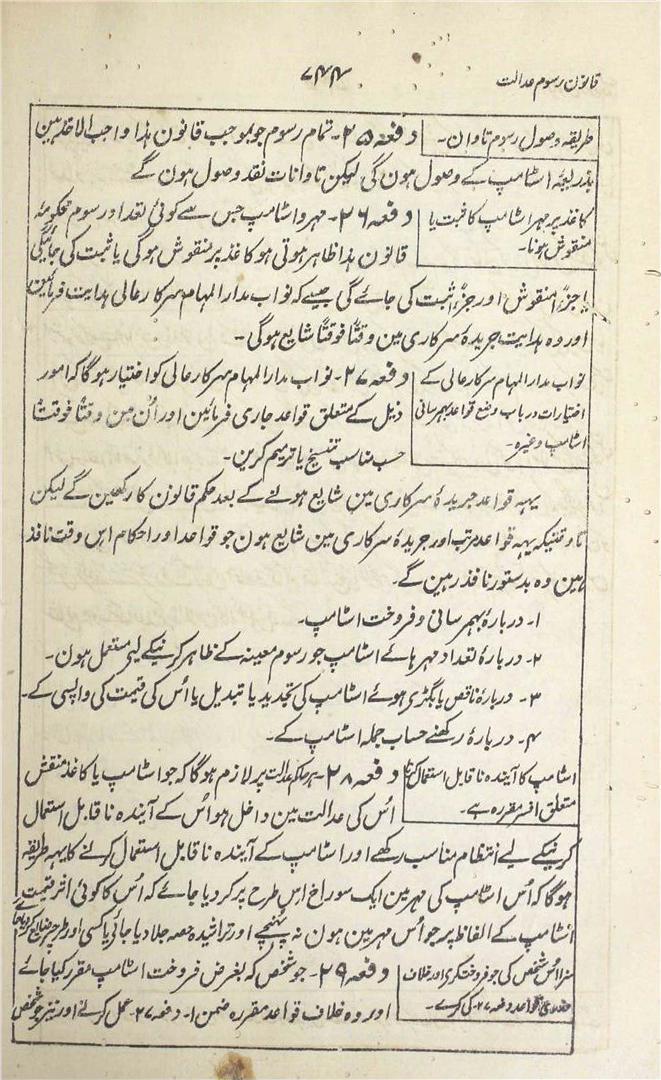 قانون رسوم عدالت
۷۴۴
طریقہ وصول رسوم تاوان۔
دفعہ ۲۵۔ تمام رسوم جو بموجب قانون ہذا واجب الاخذ ہین
بذریعہ اسٹامپ کے وصول ہون گی لیکن تاوانات نقد وصول ہون گے
کاغذ پر مہر اسٹامپ کا ثبت یا
منقوش ہونا۔
دفعہ ۲۶۔ مہر و اسٹامپ جس سے کوئی تعداد رسوم محکومہ
قانون ہذا ظاہر ہوتی ہو کاغذ پر منقوش ہوگی یا ثبت کی جائیگی
یا جزءً منقوش اور جزءً ثبت کی جائے گی جیسے کہ نواب مدار المہام سرکار عالی ہدایت فرمائین
اور وہ ہدایت جریدۂ سرکاری مین وقتًا فوقتًا شایع ہوگی۔
نواب مدار المہام سرکار عالی کے
اختیارات درباب وضع قواعد بہمرسانی
اسٹامپ وغیرہ۔
دفعہ ۲۷۔ نواب مدار المہام سرکار عالی کو اختیار ہوگا کہ امور
ذیل کے متعلق قواعد جاری فرمائین اور اُن مین وقتًا فوقتًا
حسب مناسب تنسیخ یا ترمیم کرین۔
یہہ قواعد جریدۂ سرکاری مین شایع ہونے کے بعد حکم قانون کا رکھین گے لیکن
تاوقتیکہ یہہ قواعد مرتب اور جریدۂ سرکاری مین شایع ہون جو قواعد اور احکام اس وقت نافذ
ہین وہ بدستور نافذ رہین گے۔
۱۔ دربارۂ بہمرسانی و فروخت اسٹامپ۔
۲۔ دربارۂ تعداد مہر ہائے اسٹامپ جو رسوم معینہ کے ظاہر کرنیکے لیے مستعمل ہون۔
۳۔ دربارۂ ناقص یا بگڑی ہوئے اسٹامپ کی تجدید یا تبدیل یا اُس کی قیمت کی واپسی کے۔
۴۔ دربارۂ رکھنے حساب جملہ اسٹامپ کے۔
اسٹامپ کا آیندہ ناقابل استعمال کرنا
متعلق افسر مقررہ ہے۔
دفعہ ۲۸۔ ہر حاکم عدالت پر لازم ہوگا کہ جو اسٹامپ یا کاغذ منقش
اُس کی عدالت مین داخل ہو اُس کے آیندہ ناقابل استعمال
کرنیکے لیے انتظام مناسب رکھے اور اسٹامپ کے آیندہ ناقابل استعمال کرنے کا یہہ طریقہ
ہوگا کہ اُس اسٹامپ کی مہر مین ایک سوراخ اس طرح پر کر دیا جائے کہ اُس کا کوئی اثر قیمت
اسٹامپ کے الفاظ پر جو اُس مہر مین ہون نہ پہنچے اور تراشیدہ حصہ جلا دیا جائے یا کسی اور طرح پر ضایع کر دیا جائے
سزا اُس شخص کی جو فروخت کرے اور خلاف
قواعد دفعہ ۲۷۔ کی کرے۔
دفعہ ۲۹۔ جو شخص کہ بغرض فروخت اسٹامپ مقرر کیا جائے
اور وہ خلاف قواعد مقررہ ضمن ۱۔ دفعہ ۲۷۔ عمل کرے اور نیز جو شخص